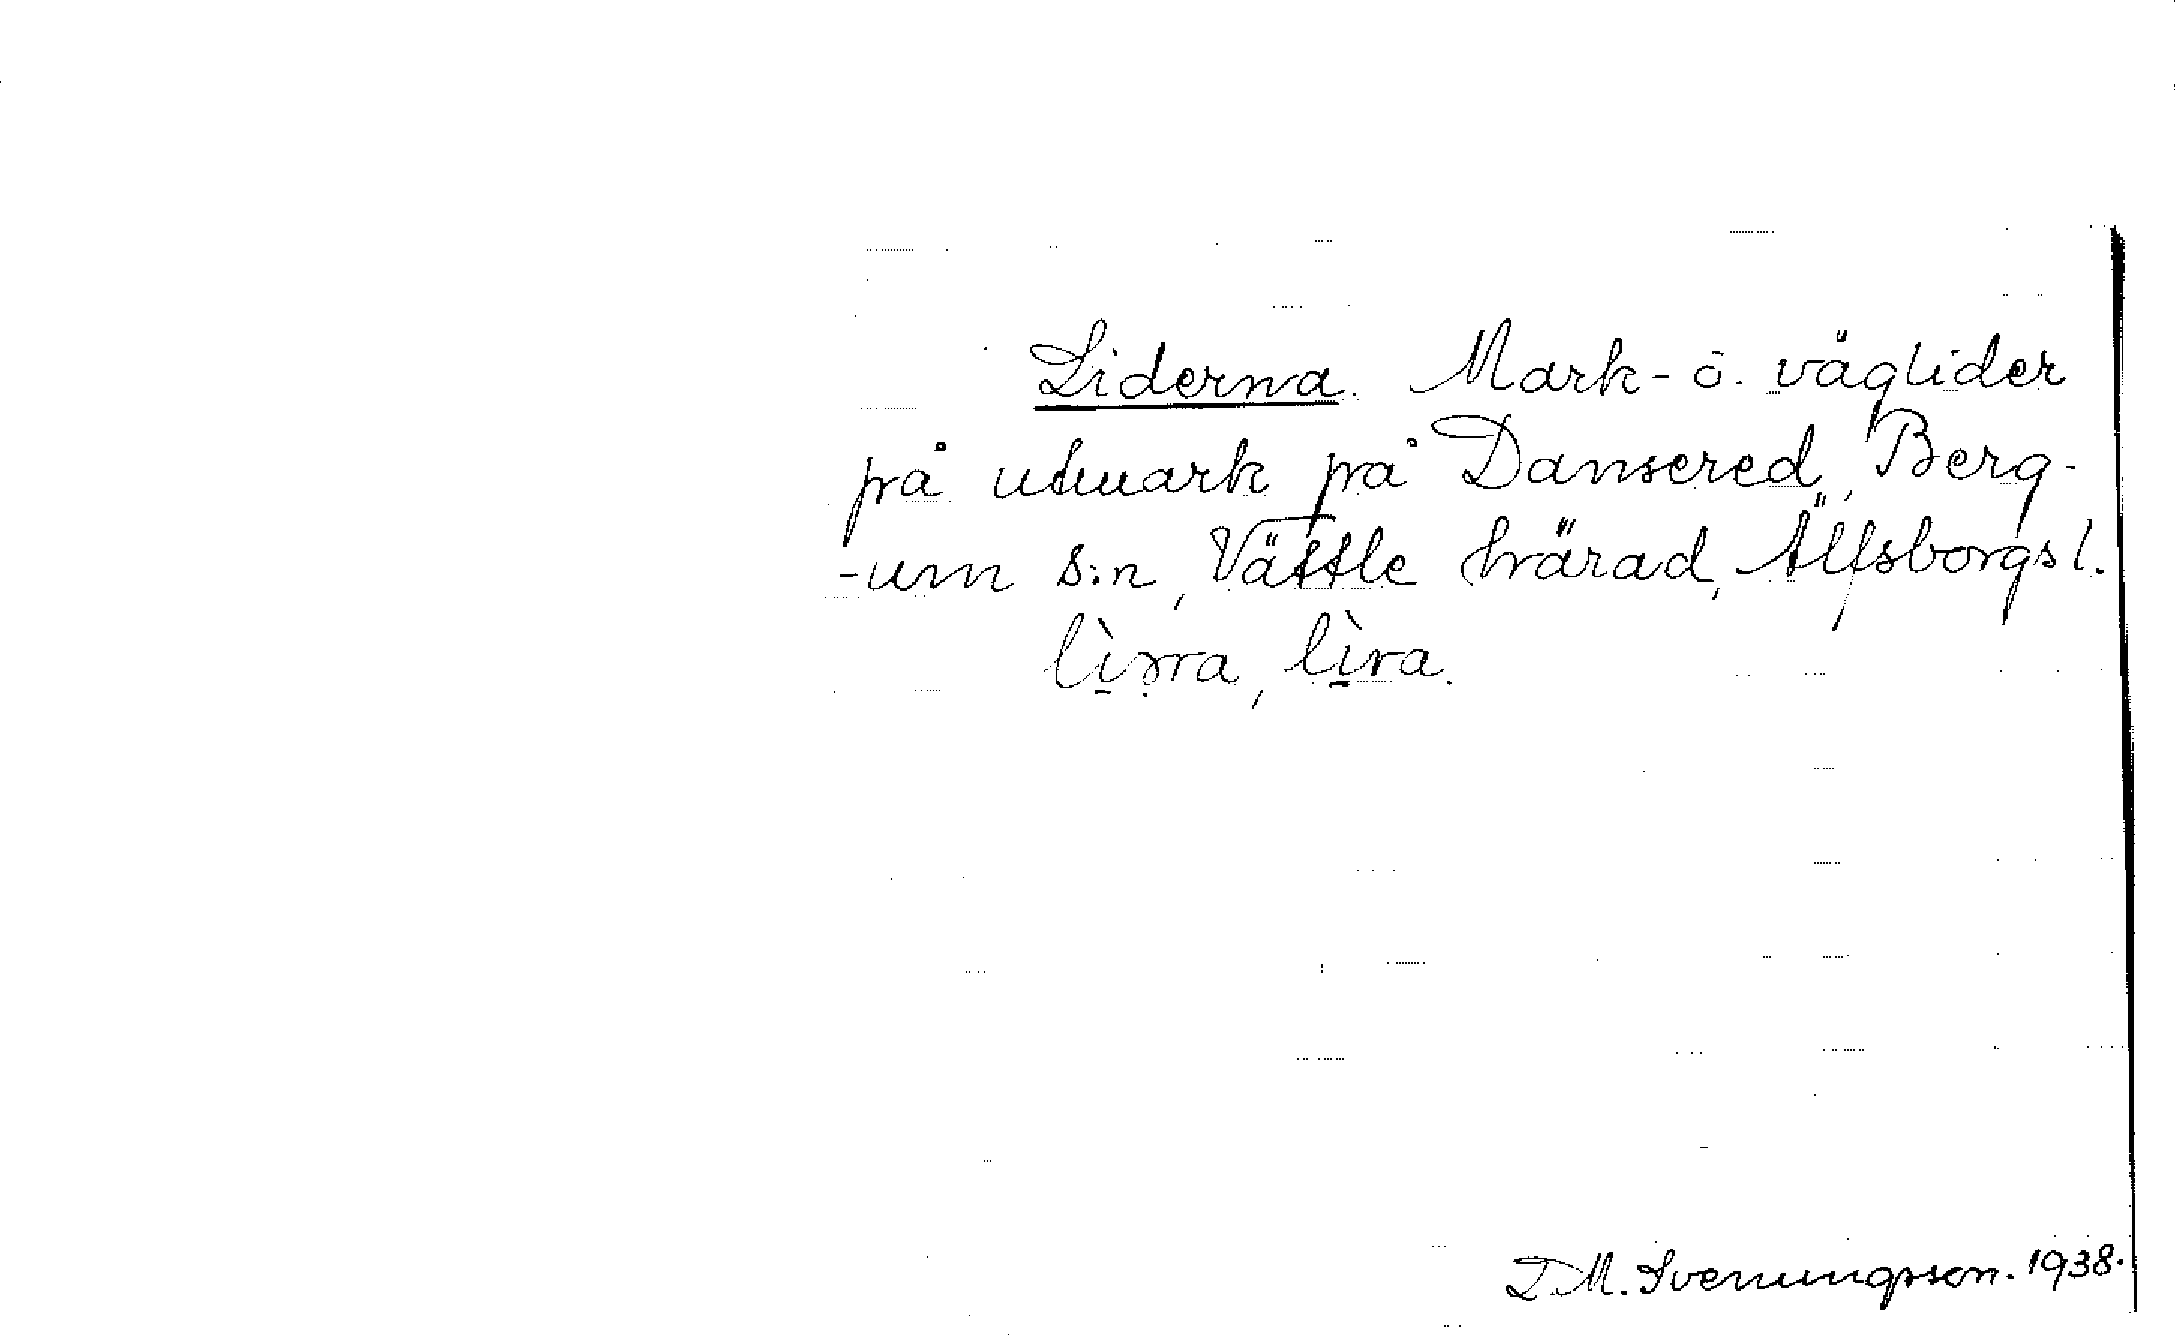 Liderna. Mark- o. väglider
på utmark på Dansered, Berg-
-um s:n, Vättle härad, Älfsborgs l.
lìṛra, lìra.
D.M. Svenningsson. 1938.